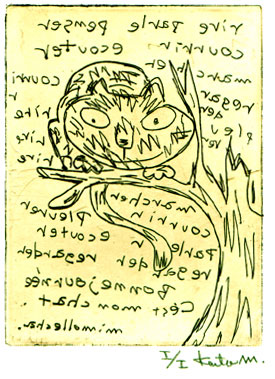 rire parle penser
courrir ecouter
marcher
courri
regarder
pleu
rire
rire
rire
marcher
pleurer courrir
ecouter parler
regarder regarder
Bonnejournée
C'est mon chat.
mimollecha.
I/I